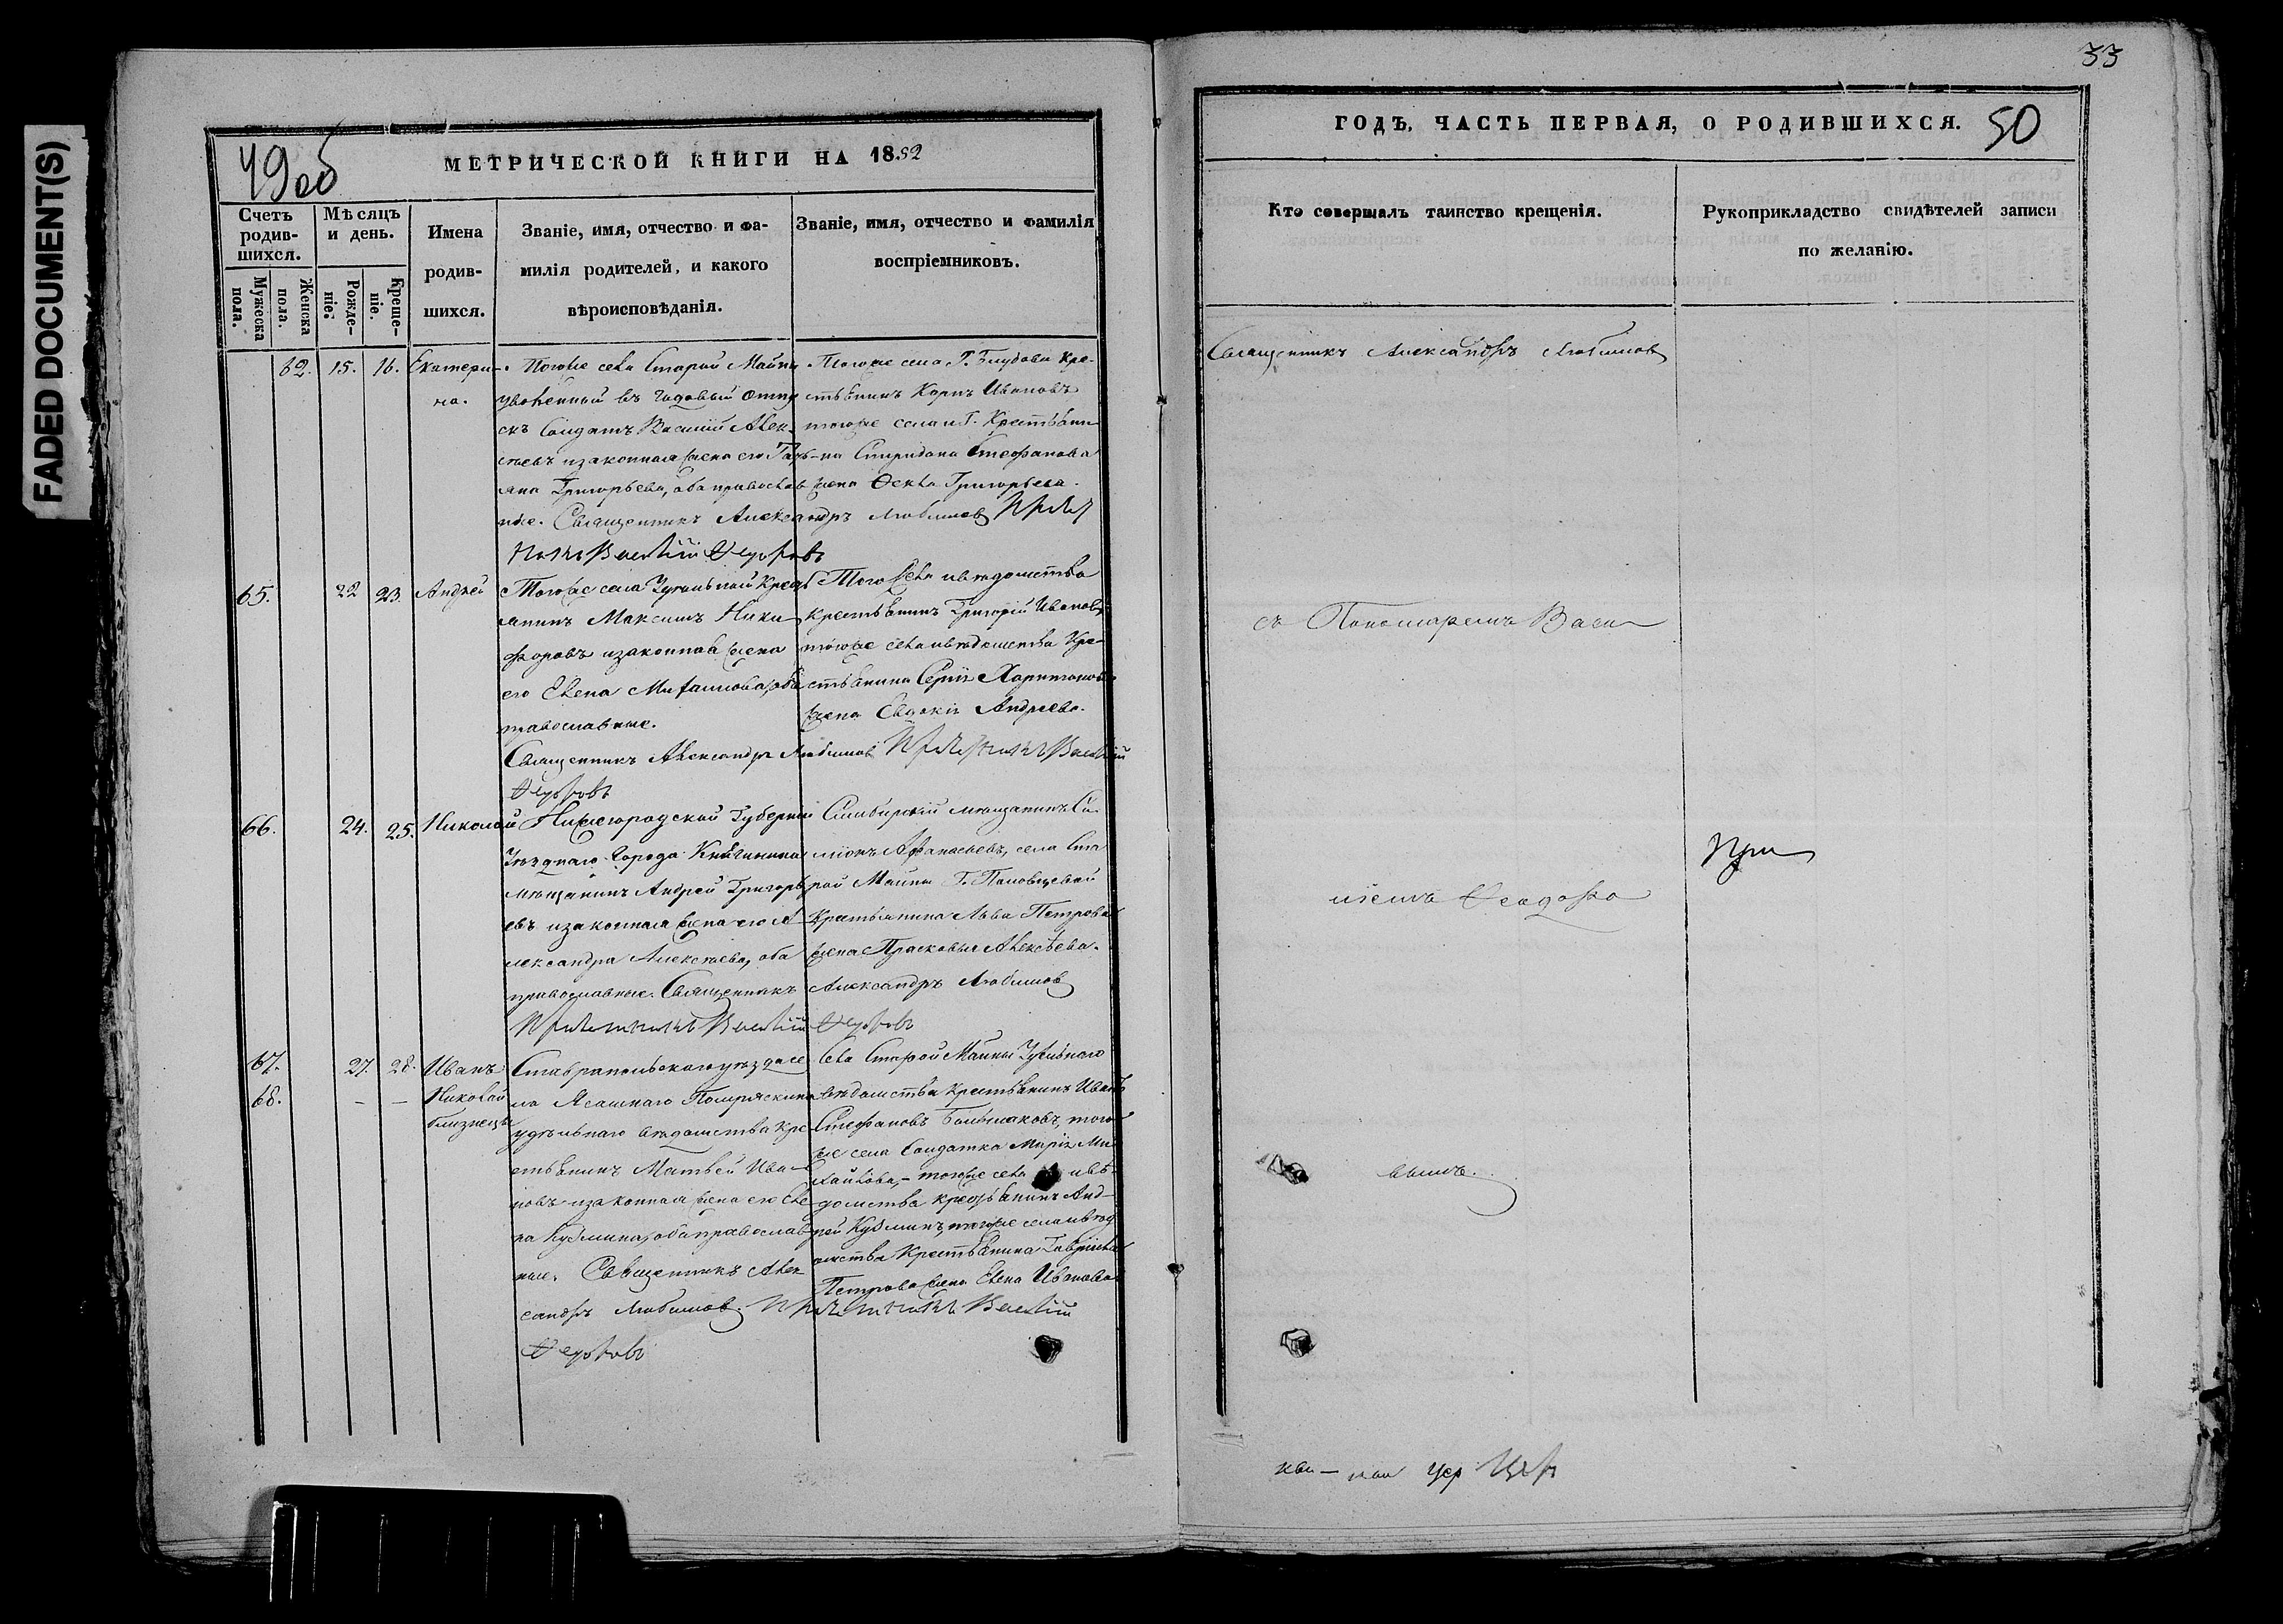 FADED DOCUMENT(S)
49 об
МЕТРИЧЕСКОЙ КНИГИ НА 1852
Счетъ родив-шихся.
Мѣсяцъ и день.
Имена родив-шихся.
Званіе, имя, отчество и фа-
милія родителей, и какого
вѣроисповѣданія.
Званіе, имя, отчество и фамилія
воспріемниковъ.
Мужеска пола.
Женска пола.
Рожде-ніе.
Креще-ніе.
62. 15. 16. Екатери-
на.
Тогоже села Старой Майны
уволенной въ годовый отпу
скъ Солдатъ Василій Алек-
сѣевъ изаконная жена его Тать
яна Григорьева, оба православ
ные. Священникъ Александръ Любимовъ
Василій Ѳедоровъ
Тогоже села Г. Блудова Кре-
стьянинъ Карпъ Ивановъ
тогоже села и Г. Крестьяни
на Спиридона Стефанова
жена Ѳекла Григорьева.
65. 22 23. Андрей
Тогоже села Удельной Кресть
янинъ Максимъ Ники
форовъ изаконная жена
его Елена Михаилова, оба
православные.
Священникъ Александръ Любимовъ Василій
Ѳедоровъ
Того села ивѣдомства
крестьянинъ Григорій Ивановъ
тогоже села ивѣдомства Кре-
стьянина Сергія Харитонова
жена Евдокія Андреева.
66. 24. 25. Николай
Нижегородской Губерніи
Уѣзднаго Города Княгинина
мѣщанинъ Андрей Григорь
евъ изаконная жена его А-
лександра Алексѣева, оба
православные. Священникъ Александръ Любимовъ
Причетникъ Василій Ѳедоровъ
Симбирскій мѣщанинъ Си-
міонъ Афанасьевъ, села Ста
рой Майны Г. Половцевой
Крестьянина Льва Петрова
жена Прасковья Алексѣева.
67. 27. 28. Иванъ
68. - - Николай
близнецы
Ставропольскаго уѣзда се
ла Ясашнаго Помряскина
удѣльнаго вѣдомства кре
стьянинъ Матвей Ива-
новъ изаконная жена его Еле
на Кузмина, оба православ
ные. Священникъ Алек
сандръ Любимовъ. Причетникъ Василій
Ѳедоровъ
Села Старой Майны Удѣльнаго
вѣдомства крестьянинъ Иванъ
Стефановъ Большаковъ, того
же села Солдатка Марія Ми
хайлова, - тогоже села ивѣ-
домства крестьянинъ Анд-
рей Кузминъ, тогоже села ивѣд
омства Крестьянина Гавріила
Петрова жена Елена Иванова.
33
ГОДЪ, ЧАСТЬ ПЕРВАЯ, О РОДИВШИХСЯ.
50
Кто совершалъ таинство крещенія.
Рукоприкладство свидѣтелей записи
по желанію.
Священникъ Александръ Любимовъ
съ Пономаремъ Васи
При
ліемъ Ѳеодоро
вымъ.